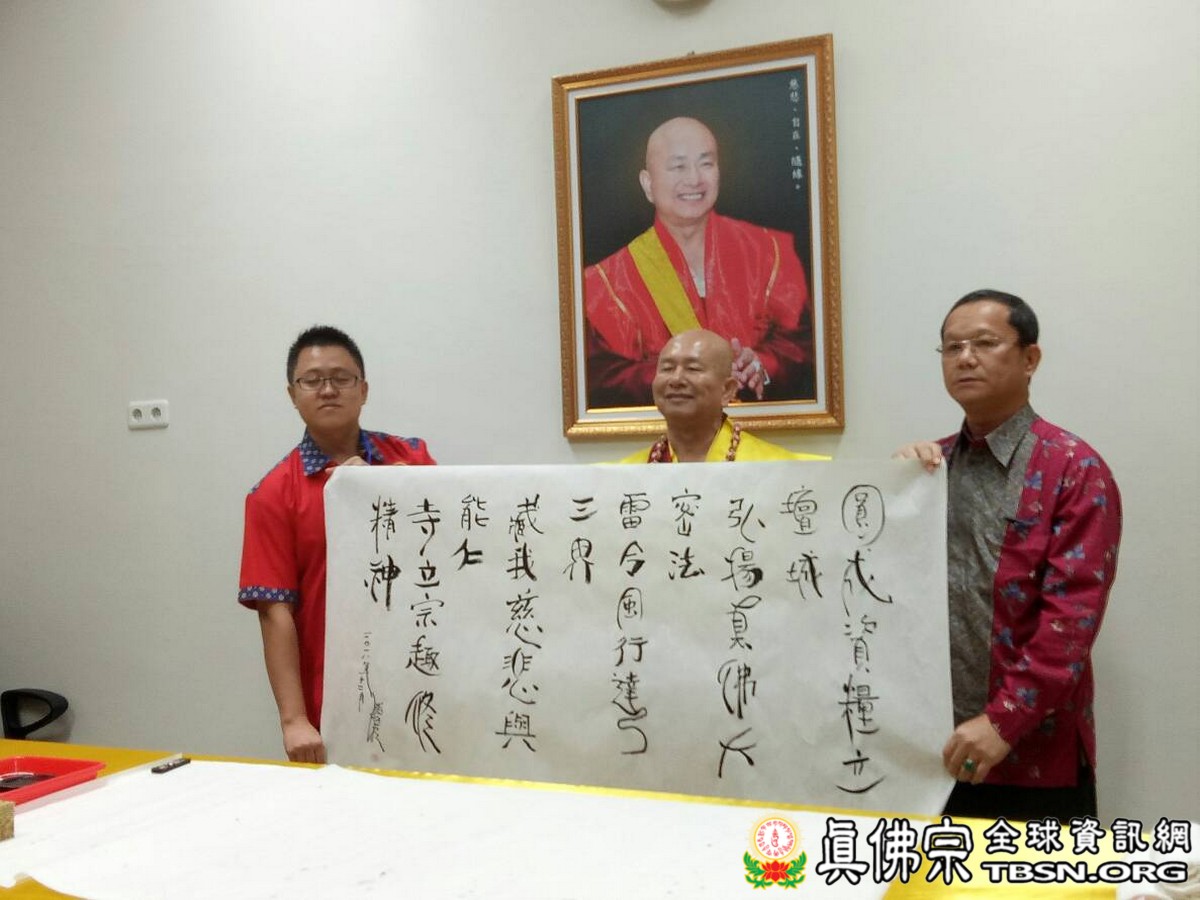 慈悲、自在、隨緣。
圓成資糧立
壇城
弘揚真佛大
密法
雷今風行達
三界
藏我慈悲與
能仁
寺立宗趣修
精神
二〇一八年十二月
真佛宗全球資訊網
TBSN.ORG